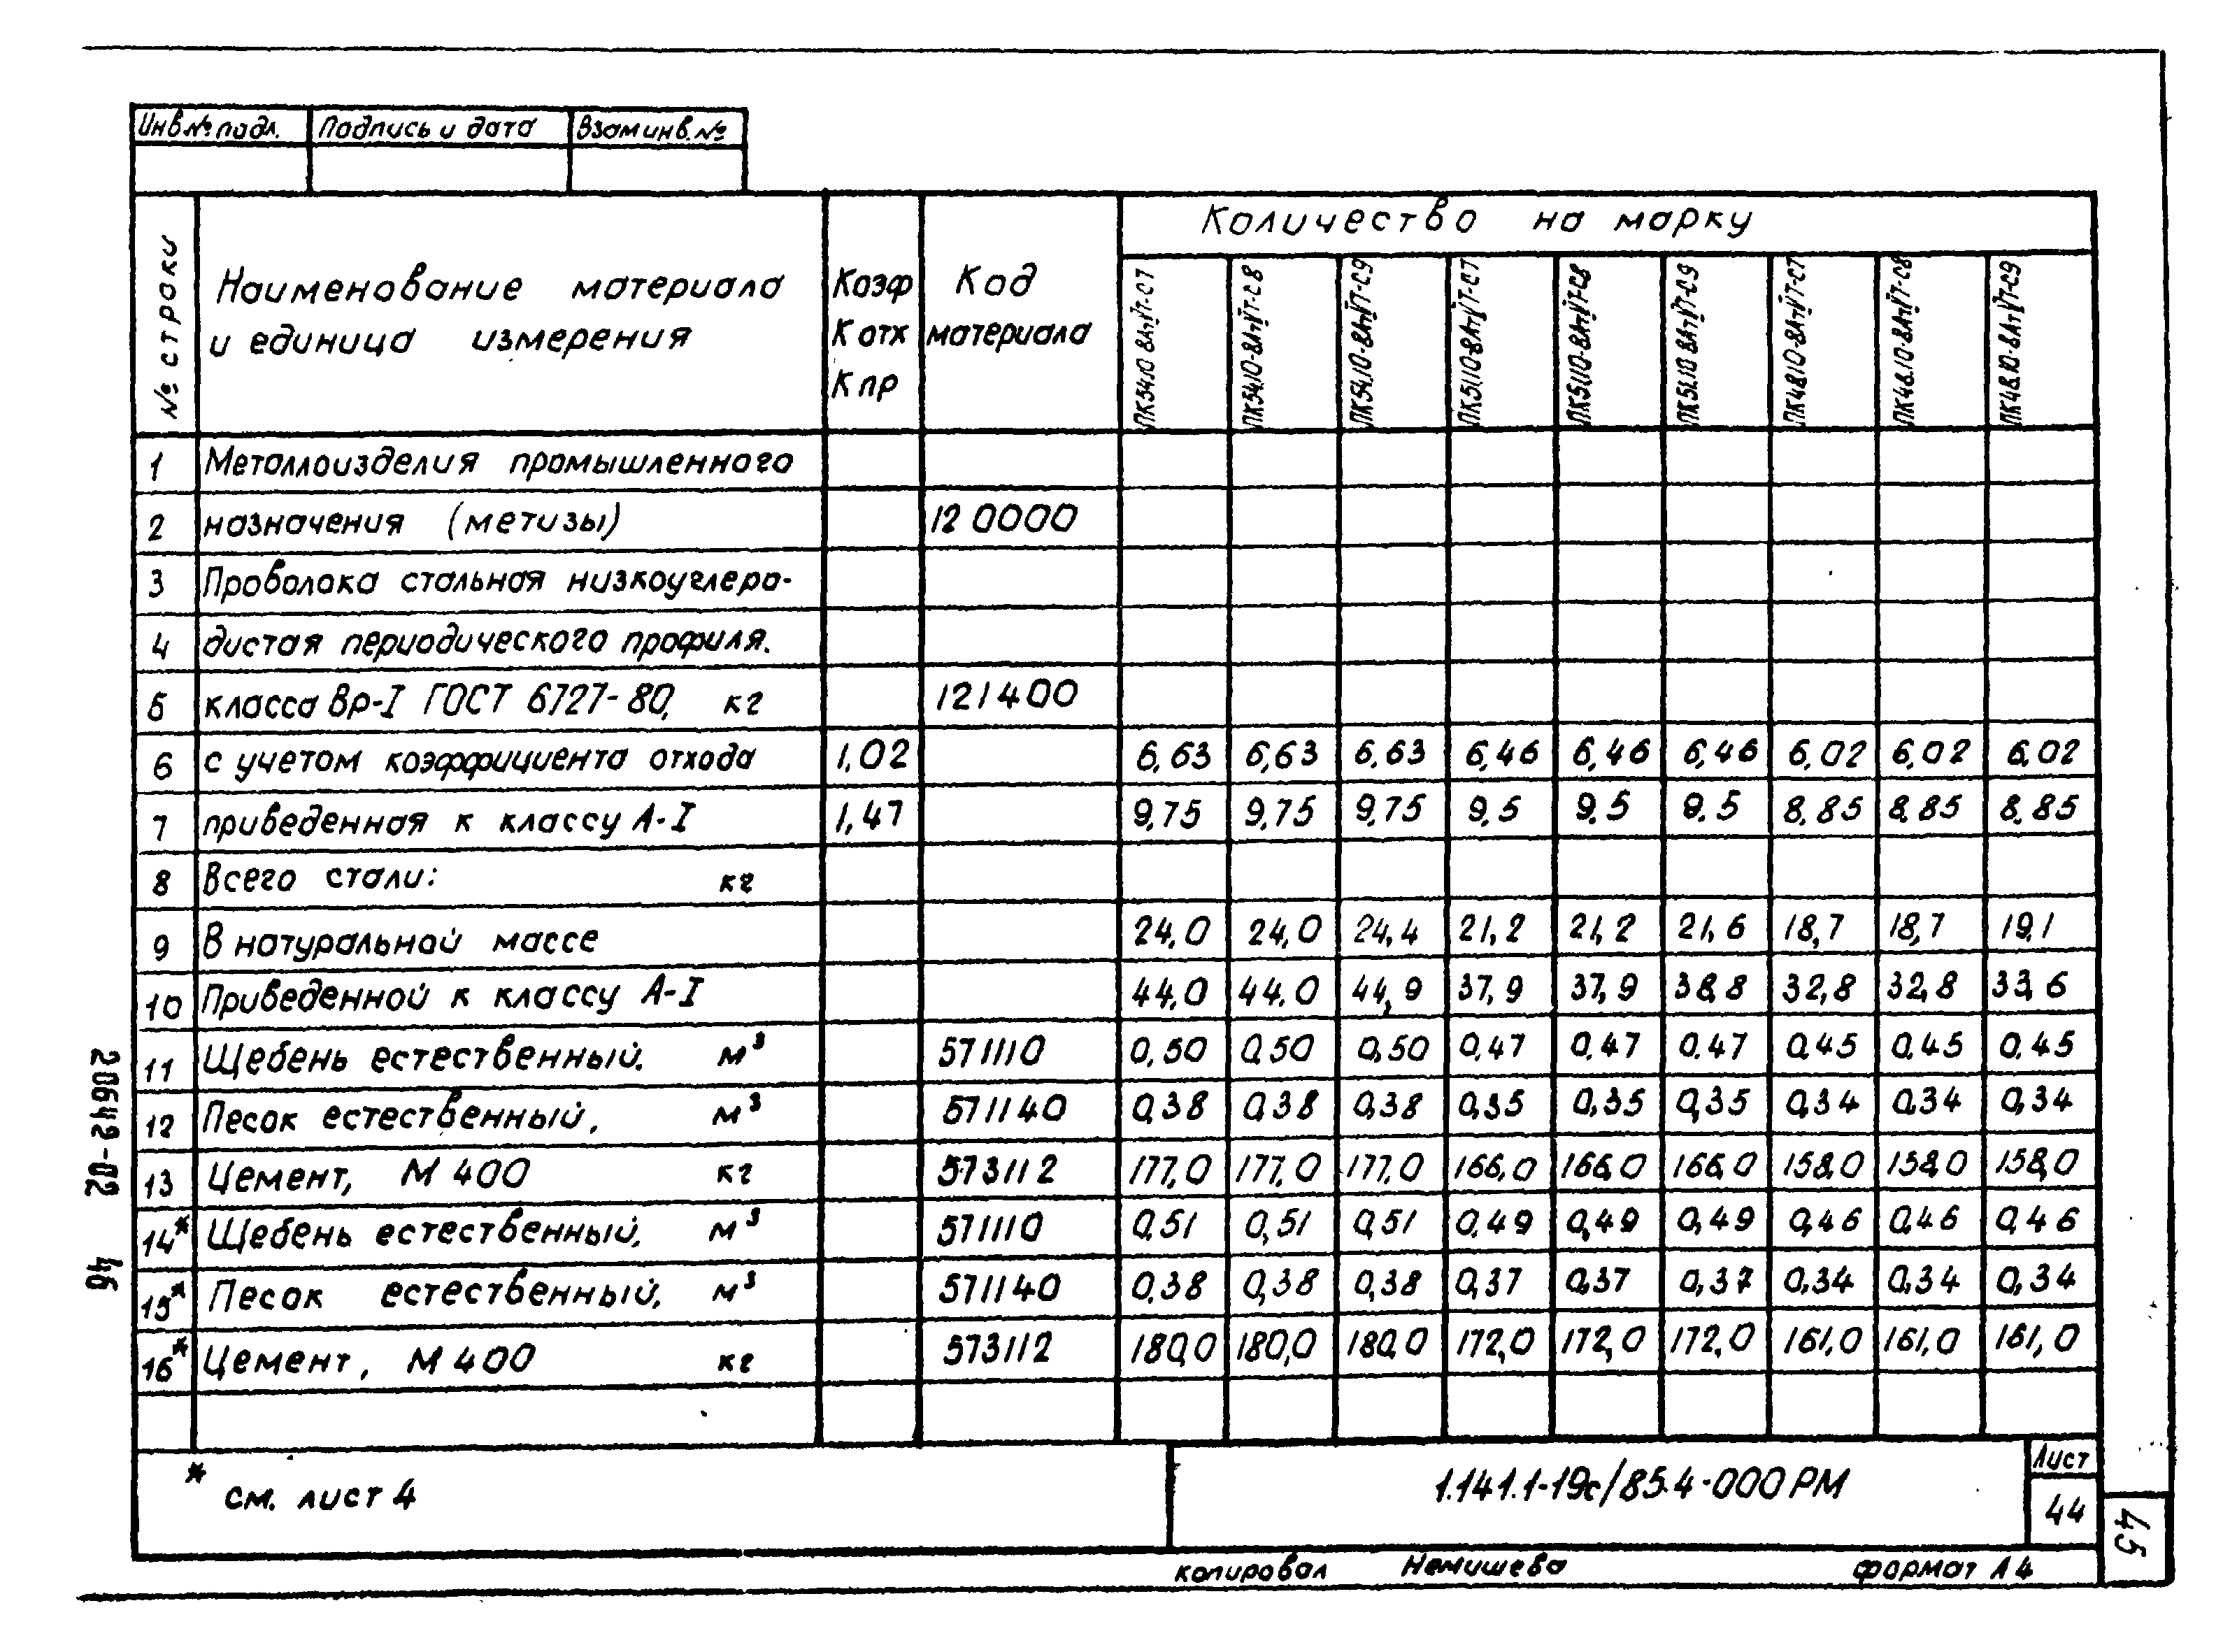 Инв.№ подл. Подпись и дата Взам инв. №
№ строки
Наименование материала и единица измерения
Коэф К отх К пр
Код материала
Количество на марку
ПК54.10-8АтVТ-С7 ПК54.10-8АтVТ-С8 ПК54.10-8АтVТ-С9 ПК51.10-8АтVТ-С7 ПК51.10-8АтVТ-С8 ПК51.10-8АтVТ-С9 ПК48.10-8АтVТ-С7 ПК48.10-8АтVТ-С8 ПК48.10-8АтVТ-С9
1 Металлоизделия промышленного
2 назначения (метизы) 12 0000
3 Проволока стальная низкоуглеро-
4 дистая периодического профиля.
5 класса Вр-I ГОСТ 6727-80, кг 121400
6 с учетом коэффициента отхода 1,02 6,63 6,63 6,63 6,46 6,46 6,46 6,02 6,02 6,02
7 приведенная к классу А-I 1,47 9,75 9,75 9,75 9,5 9,5 9,5 8,85 8,85 8,85
8 Всего стали: кг
9 В натуральной массе 24,0 24,0 24,4 21,2 21,2 21,6 18,7 18,7 19,1
10 Приведенной к классу А-I 44,0 44,0 44,9 37,9 37,9 38,8 32,8 32,8 33,6
11 Щебень естественный, м³ 571110 0,50 0,50 0,50 0,47 0,47 0,47 0,45 0,45 0,45
12 Песок естественный, м³ 571140 0,38 0,38 0,38 0,35 0,35 0,35 0,34 0,34 0,34
13 Цемент, М 400 кг 573112 177,0 177,0 177,0 166,0 166,0 166,0 158,0 158,0 158,0
14* Щебень естественный, м³ 571110 0,51 0,51 0,51 0,49 0,49 0,49 0,46 0,46 0,46
15* Песок естественный, м³ 571140 0,38 0,38 0,38 0,37 0,37 0,37 0,34 0,34 0,34
16* Цемент, М 400 кг 573112 180,0 180,0 180,0 172,0 172,0 172,0 161,0 161,0 161,0
* см. лист 4
1.141.1-19с/85.4-000 РМ
Лист
44
45
копировал Немишева формат А4
20642-02 46